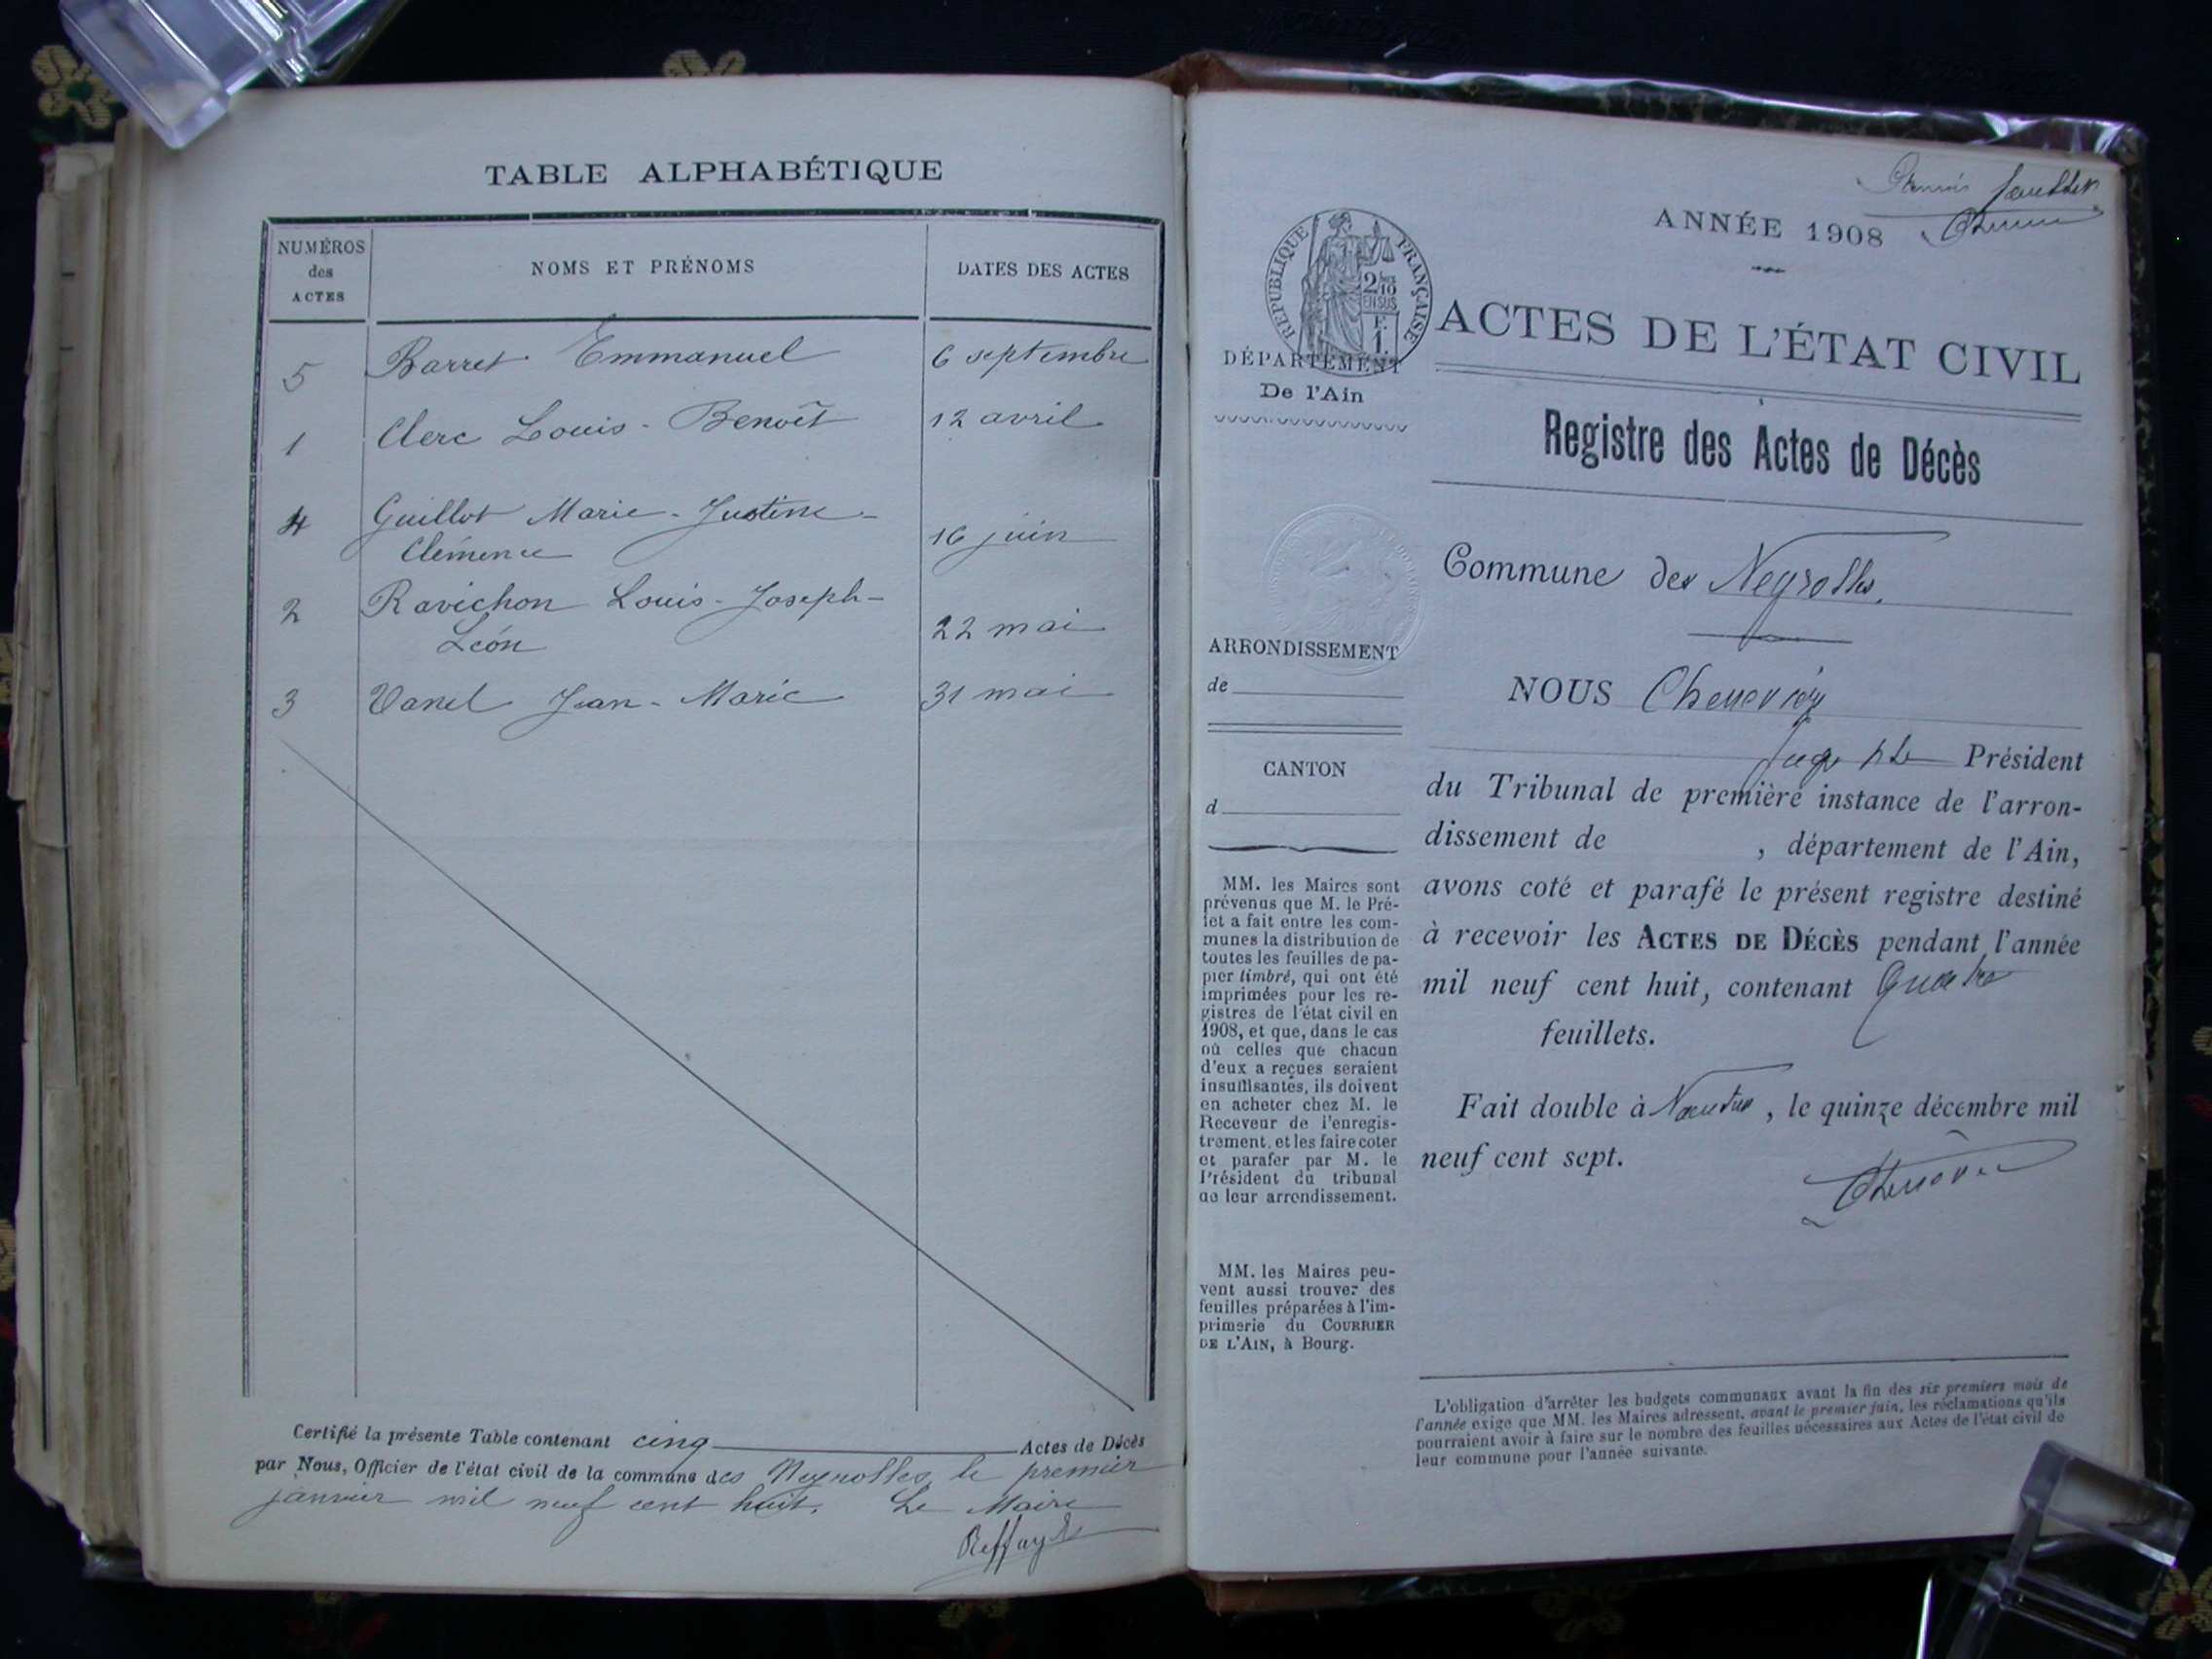 TABLE ALPHABÉTIQUE
NUMÉROS
des
ACTES
NOMS ET PRÉNOMS
DATES DES ACTES
5 Barret Emmanuel 6 septembre
1 Clerc Louis-Benoît 12 avril
4 Guillot Marie-Justine-
Clémence 16 juin
2 Ravichon Louis-Joseph-
Léon 22 mai
3 Vanel Jean-Marie 31 mai
Certifié la présente Table contenant cinq Actes de Décès
par Nous, Officier de l'état civil de la commune des Neyrolles, le premier
janvier mil neuf cent huit. Le Maire
Premier feuillet
ANNÉE 1908
RÉPUBLIQUE FRANÇAISE
2/10
EN SUS
F.
1.
DÉPARTEMENT
De l'Ain
ARRONDISSEMENT
de
CANTON
d
MM. les Maires sont
prévenus que M. le Pré-
fet a fait entre les com-
munes la distribution de
toutes les feuilles de pa-
pier timbré, qui ont été
imprimées pour les re-
gistres de l'état civil en
1908, et que, dans le cas
où celles que chacun
d'eux a reçues seraient
insuffisantes, ils doivent
en acheter chez M. le
Receveur de l'enregis-
trement, et les faire coter
et parafer par M. le
Président du tribunal
de leur arrondissement.
MM. les Maires peu-
vent aussi trouver des
feuilles préparées à l'im-
primerie du COURRIER
DE L'AIN, à Bourg.
ACTES DE L'ÉTAT CIVIL
Registre des Actes de Décès
Commune des Neyrolles.
NOUS
Juge Président
du Tribunal de première instance de l'arron-
dissement de , département de l'Ain,
avons coté et parafé le présent registre destiné
à recevoir les ACTES DE DÉCÈS pendant l'année
mil neuf cent huit, contenant Quatre
feuillets.
Fait double à Nantua, le quinze décembre mil
neuf cent sept.
L'obligation d'arrêter les budgets communaux avant la fin des six premiers mois de
l'année exige que MM. les Maires adressent, avant le premier juin, les réclamations qu'ils
pourraient avoir à faire sur le nombre des feuilles nécessaires aux Actes de l'état civil de
leur commune pour l'année suivante.